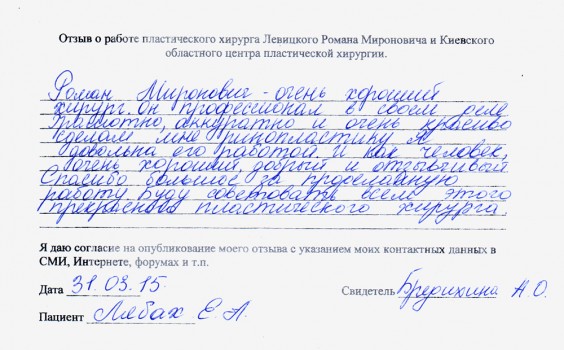 Отзыв о работе пластического хирурга Левицкого Романа Мироновича и Киевского
областного центра пластической хирургии.
Роман Миронович - очень хороший
хирург. он профессионал в своем деле
Грамотно, аккуратно и очень красиво
сделал мне ринопластику я
довольна его работой и как человек,
очень хороший, добрый и отзывчивый
Спасибо большое за проделанную
работу буду советовать всем этого
прекрасного пластического хирурга.
Я даю согласие на опубликование моего отзыва с указанием моих контактных данных в
СМИ, Интернете, форумах и т.п.
Дата 31.03.15. Свидетель Бредихина А.О.
Пациент Лябах Е.А.